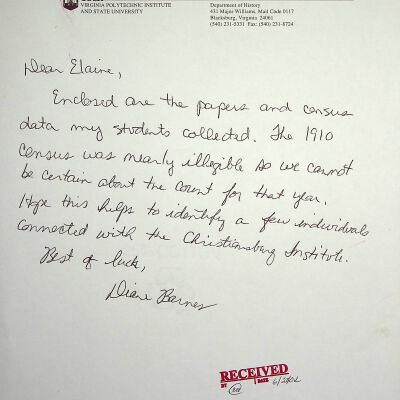 VIRGINIA POLYTECHNIC INSTITUTE
AND STATE UNIVERSITY
Department of History
431 Major Williams, Mail Code 0117
Blacksburg, Virginia 24061
(540) 231-5331 Fax: (540) 231-8724
Dear Elaine,
Enclosed are the papers and census
data my students collected. The 1910
census was nearly illegible so we cannot
be certain about the count for that year.
Hope this helps to identify a few individuals
connected with the Christiansburg Institute.
Best of luck,
Diane Barnes
RECEIVED
BY DATE